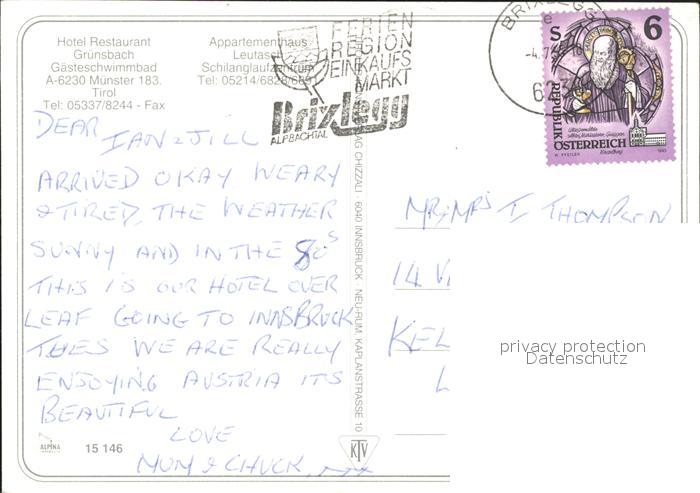 Hotel Restaurant
Grünsbach
Gästeschwimmbad
A-6230 Münster 183.
Tirol
Tel: 05337/8244 - Fax
Appartementhaus
Leutasch
Schilanglaufzentrum
Tel: 05214/6828/
FERIEN
REGION
EINKAUFS
MARKT
Brixlegg
ALPBACHTAL
BRIXLEGG
S 6
REPUBLIK
ÖSTERREICH
DEAR
IAN & JILL
ARRIVED OKAY WEARY
& TIRED, THE WEATHER
SUNNY AND IN THE 80s
THIS IS OUR HOTEL OVER
LEAF GOING TO INNSBRUCK
TUES WE ARE REALLY
ENJOYING AUSTRIA ITS
BEAUTIFUL
LOVE
MUM & CHUCK, XX
CHIZZALI · 6040 INNSBRUCK · NEU-RUM, KAPLANSTRASSE 10
MR & MRS I THOMPSON
14
KEL
L
privacy protection
Datenschutz
ALPINA
15 146
KTV